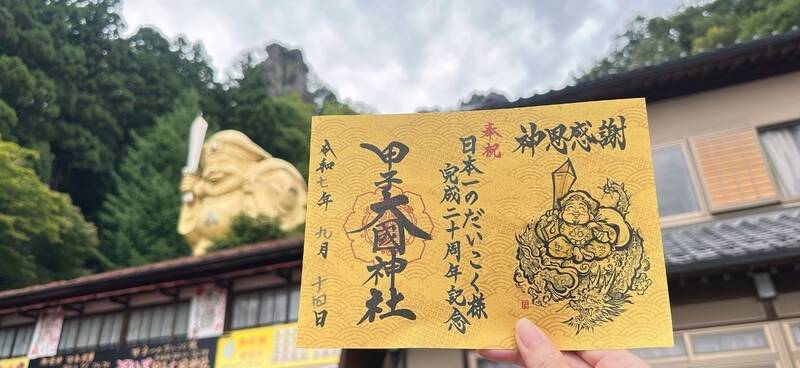 神恩感謝
奉祝
日本一のだいこく様
完成二十周年記念
甲子大國神社
令和七年
九月
十四日